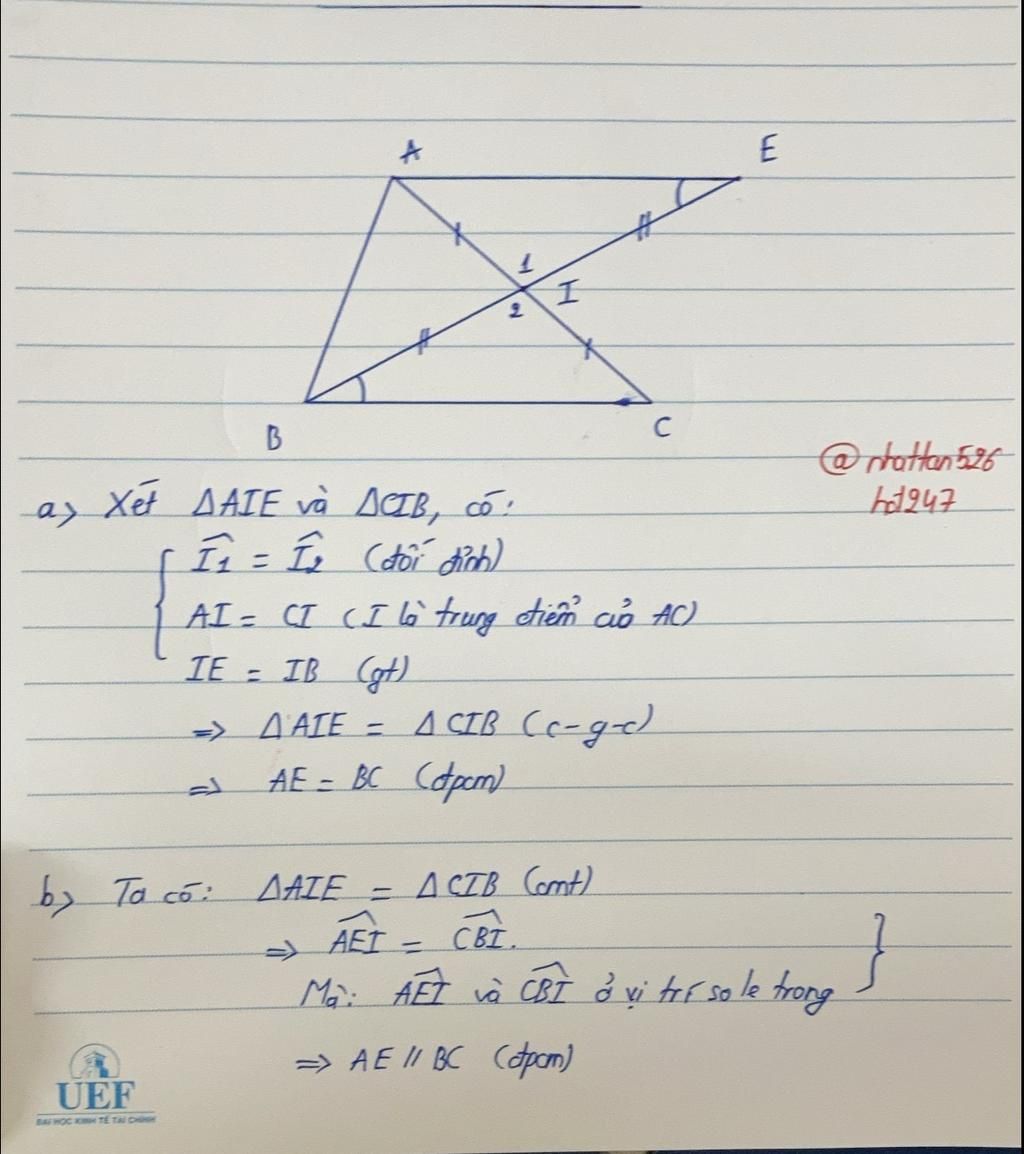 A
E
1
I
2
B
C
@nhattan526
hd247
a) Xét ΔAIE và ΔCIB, có:
Î₁ = Î₂ (đối đỉnh)
AI = CI (I là trung điểm của AC)
IE = IB (gt)
=> ΔAIE = ΔCIB (c-g-c)
=> AE = BC (đpcm)
b) Ta có: ΔAIE = ΔCIB (cmt)
=> \widehat{AEI} = \widehat{CBI}.
Mà: \widehat{AEI} và \widehat{CBI} ở vị trí so le trong }
=> AE // BC (đpcm)
UEF
ĐẠI HỌC KINH TẾ TÀI CHÍNH